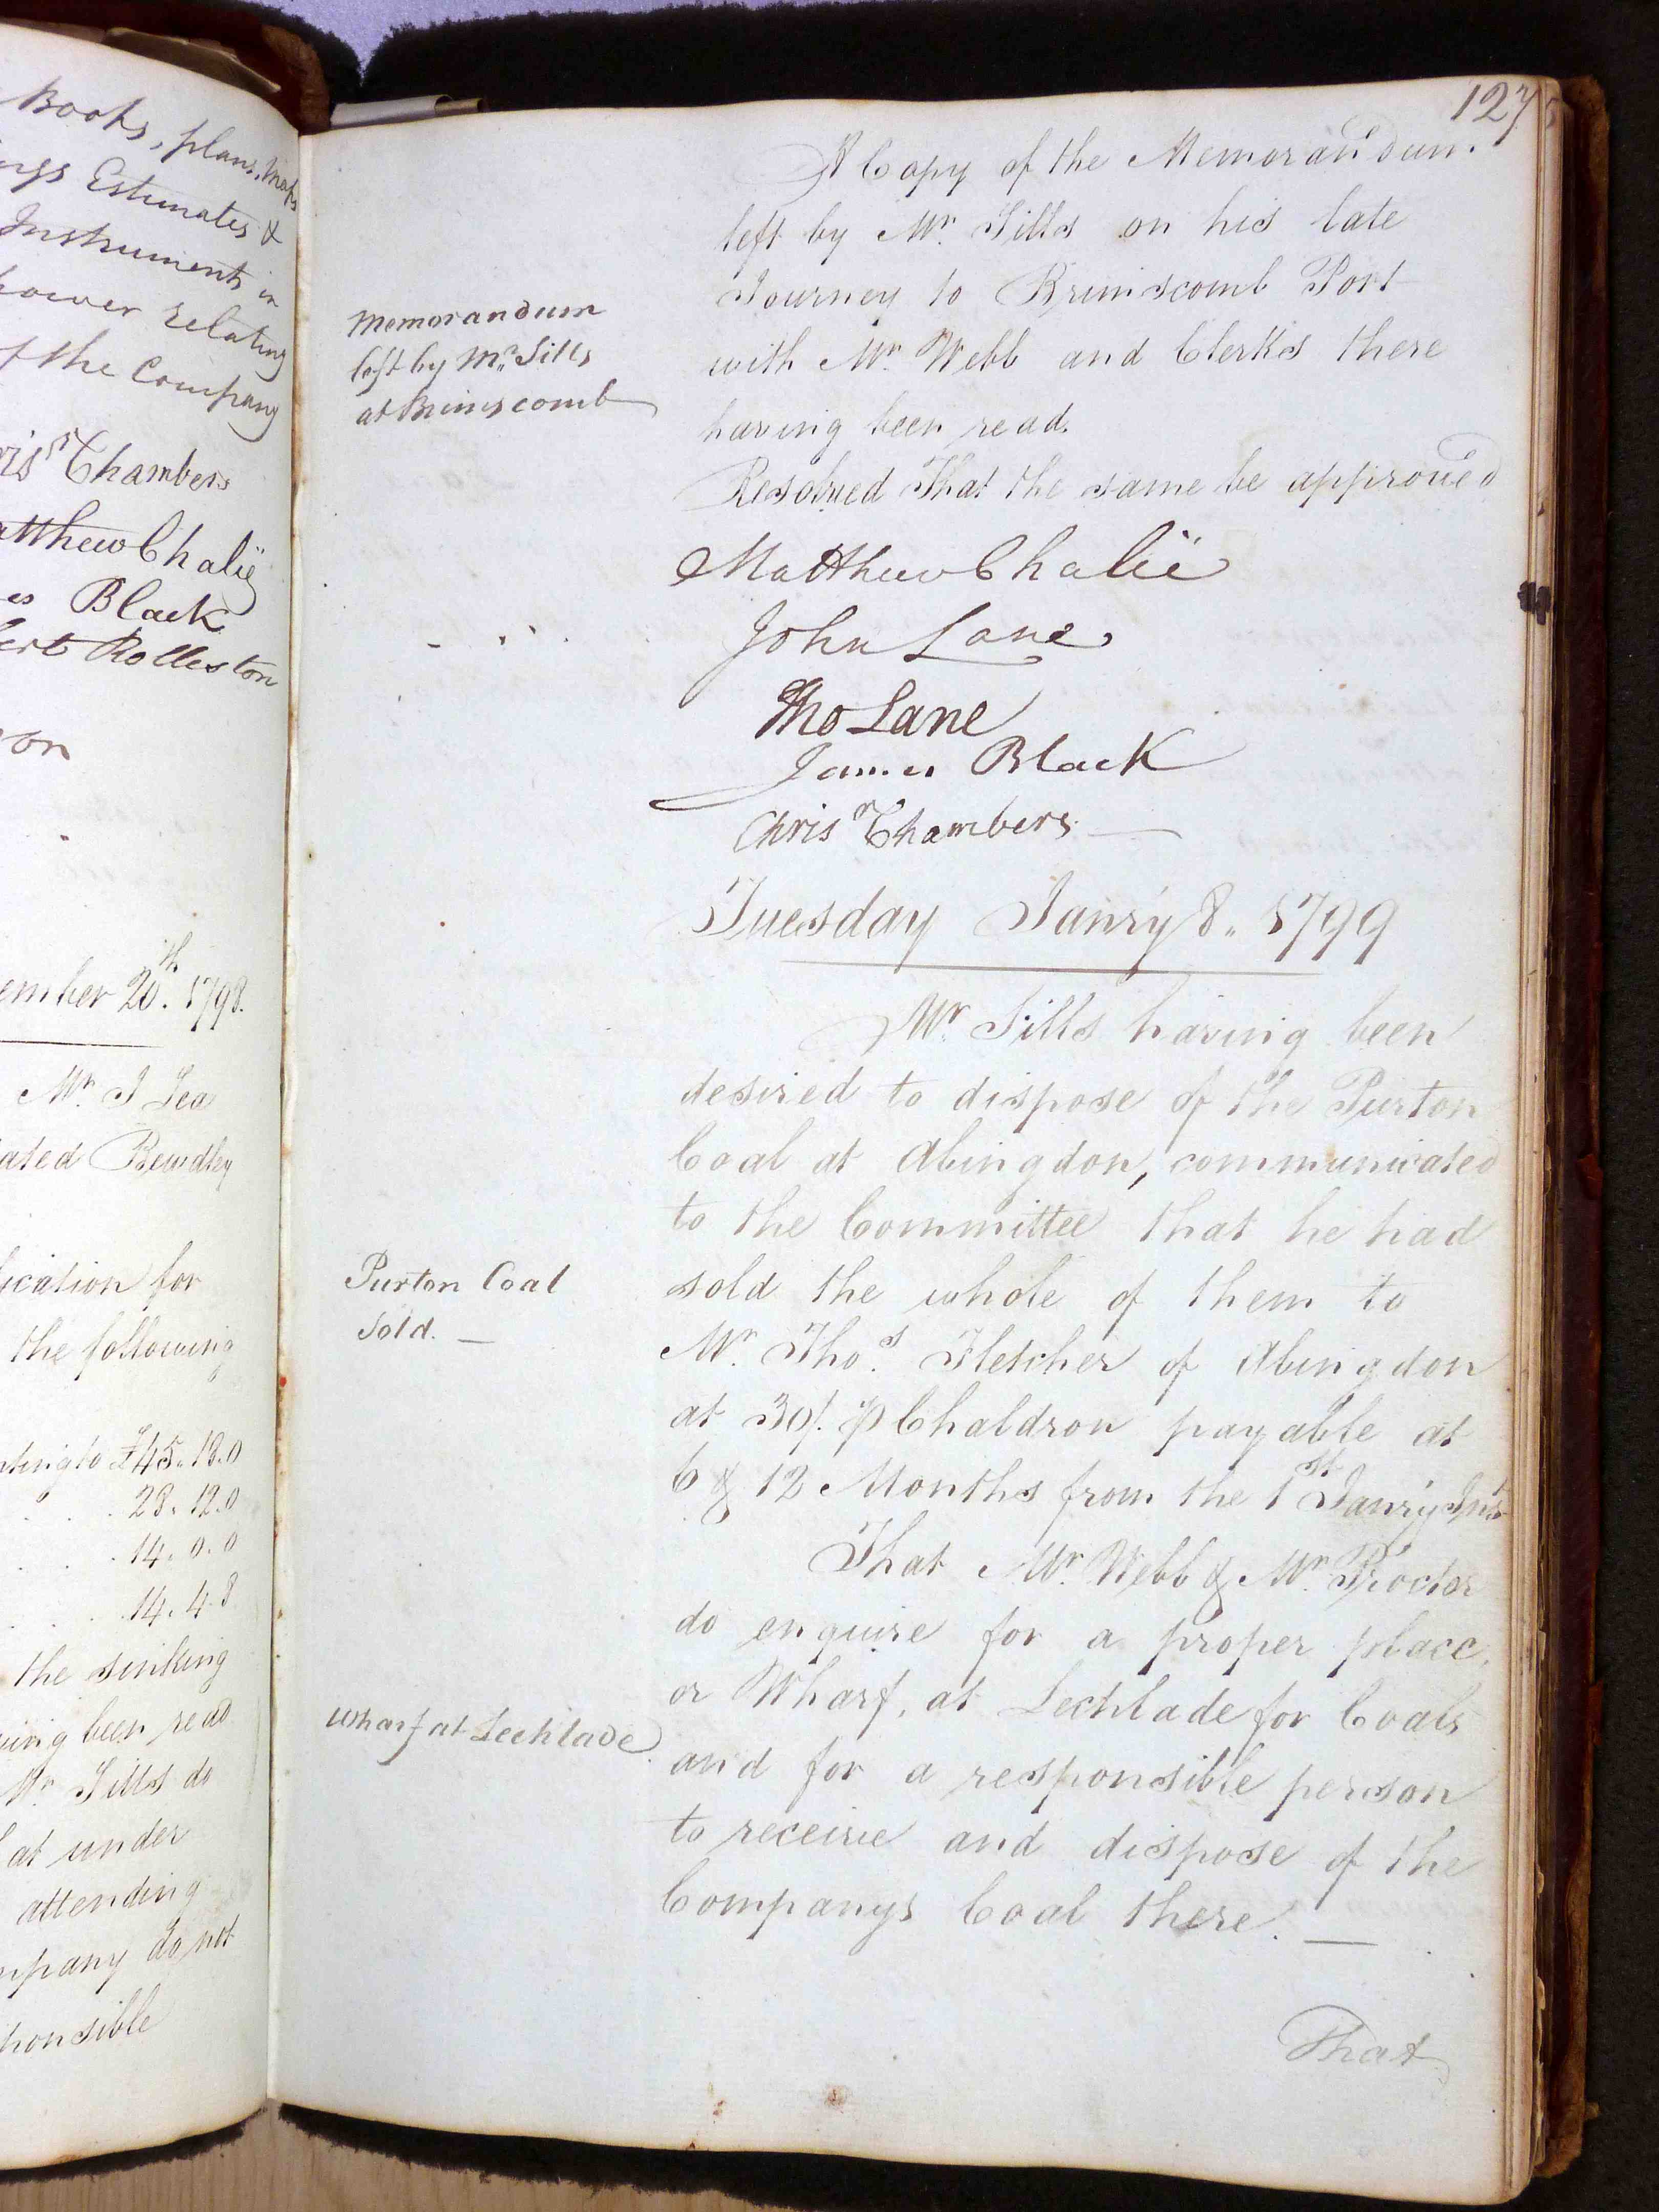 Books, plans, Maps
Estimates &
Instruments in
power relating
the Company
Chambers
Matthew Chalié
Black
Rolleston
on
ember 20th. 1798.
Mr. J Lea
ated Bewdley
ication for
the following
to £45.18.0
28.12.0
14.0.0
14.4.8
the sinking
been read
Mr. Sills do
at under
attending
mpany do not
ponsible
127
A Copy of the Memorandum
left by Mr. Sills on his late
Journey to Brimscomb Port
with Mr. Webb and Clerks there
having been read.
Resolved That the same be approved
Memorandum
left by Mr. Sills
at Brimscomb
Matthew Chalié
John Lane
Tho Lane
James Black
Chrisr Chambers
Tuesday Janry 8. 1799
Mr. Sills having been
desired to dispose of the Purton
Coal at Abingdon, communicated
to the Committee that he had
sold the whole of them to
Mr. Thos. Fletcher of Abingdon
at 30/. ⅌ Chaldron payable at
6 & 12 Months from the 1st Janry Inst
Purton Coal
Sold. —
That Mr. Webb & Mr. Procter
do enquire for a proper place,
or Wharf, at Lechlade for Coals
and for a responsible person
to receive and dispose of the
Companys Coal there. —
Wharf at Lechlade
That